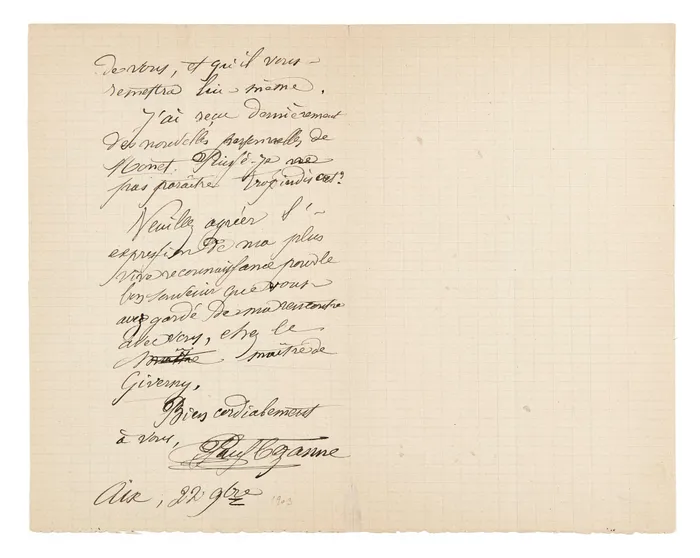 de vous, et qu'il vous
remettra lui-même.
J'ai reçu dernièrement
des nouvelles personnelles de
Monet. Puissé-je ne
pas paraître trop indiscret?
Veuillez agréer l'-
expression de ma plus
vive reconnaissance pour le
bon souvenir que vous
avez gardé de ma rencontre
avec vous, chez le
maître de
Giverny.
Bien cordialement
à vous,
Paul Cezanne
Aix, 22 9bre 1903